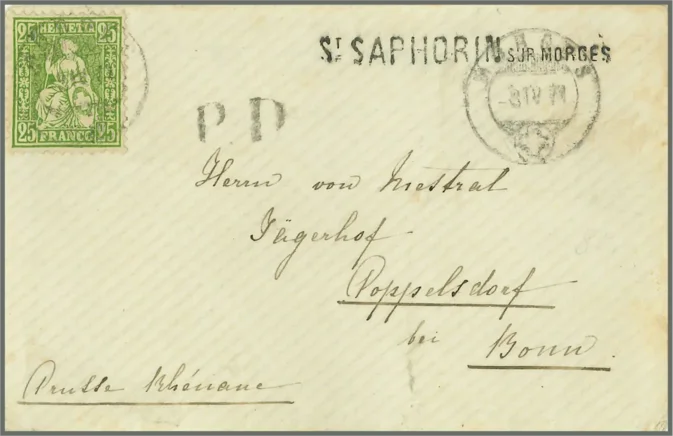 25 HELVETIA 25
25 FRANCO 25
ST SAPHORIN SUR MORGES
MORGES
P.D
Herrn von Mestral
Jägerhof
Poppelsdorf
bei Bonn.
Prusse Rhénane